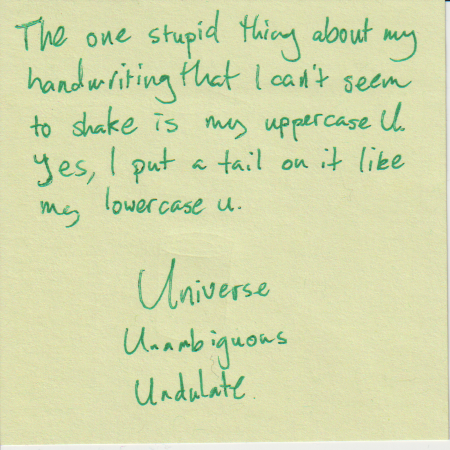 The one stupid thing about my
handwriting that I can't seem
to shake is my uppercase U.
Yes, I put a tail on it like
my lowercase u.
Universe
Unambiguous
Undulate.